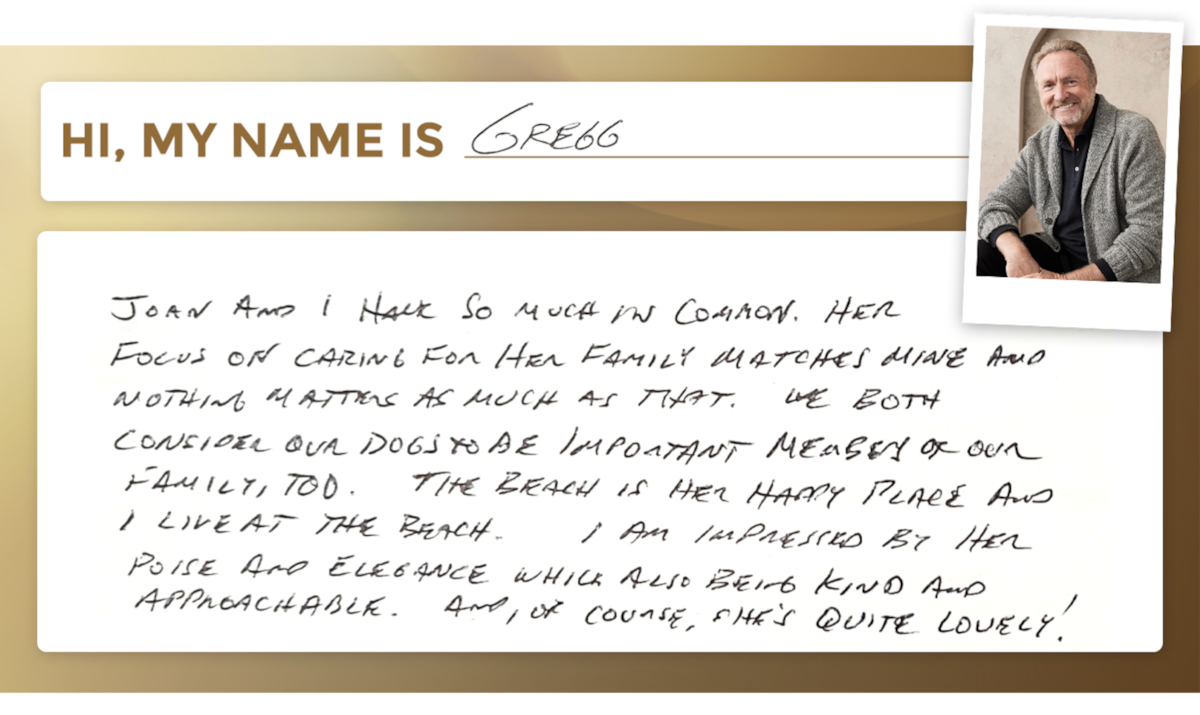 HI, MY NAME IS GREGG
JOAN AND I HAVE SO MUCH IN COMMON. HER
FOCUS ON CARING FOR HER FAMILY MATCHES MINE AND
NOTHING MATTERS AS MUCH AS THAT. WE BOTH
CONSIDER OUR DOGS TO BE IMPORTANT MEMBERS OF OUR
FAMILY, TOO. THE BEACH IS HER HAPPY PLACE AND
I LIVE AT THE BEACH. I AM IMPRESSED BY HER
POISE AND ELEGANCE WHILE ALSO BEING KIND AND
APPROACHABLE. AND, OF COURSE, SHE'S QUITE LOVELY!